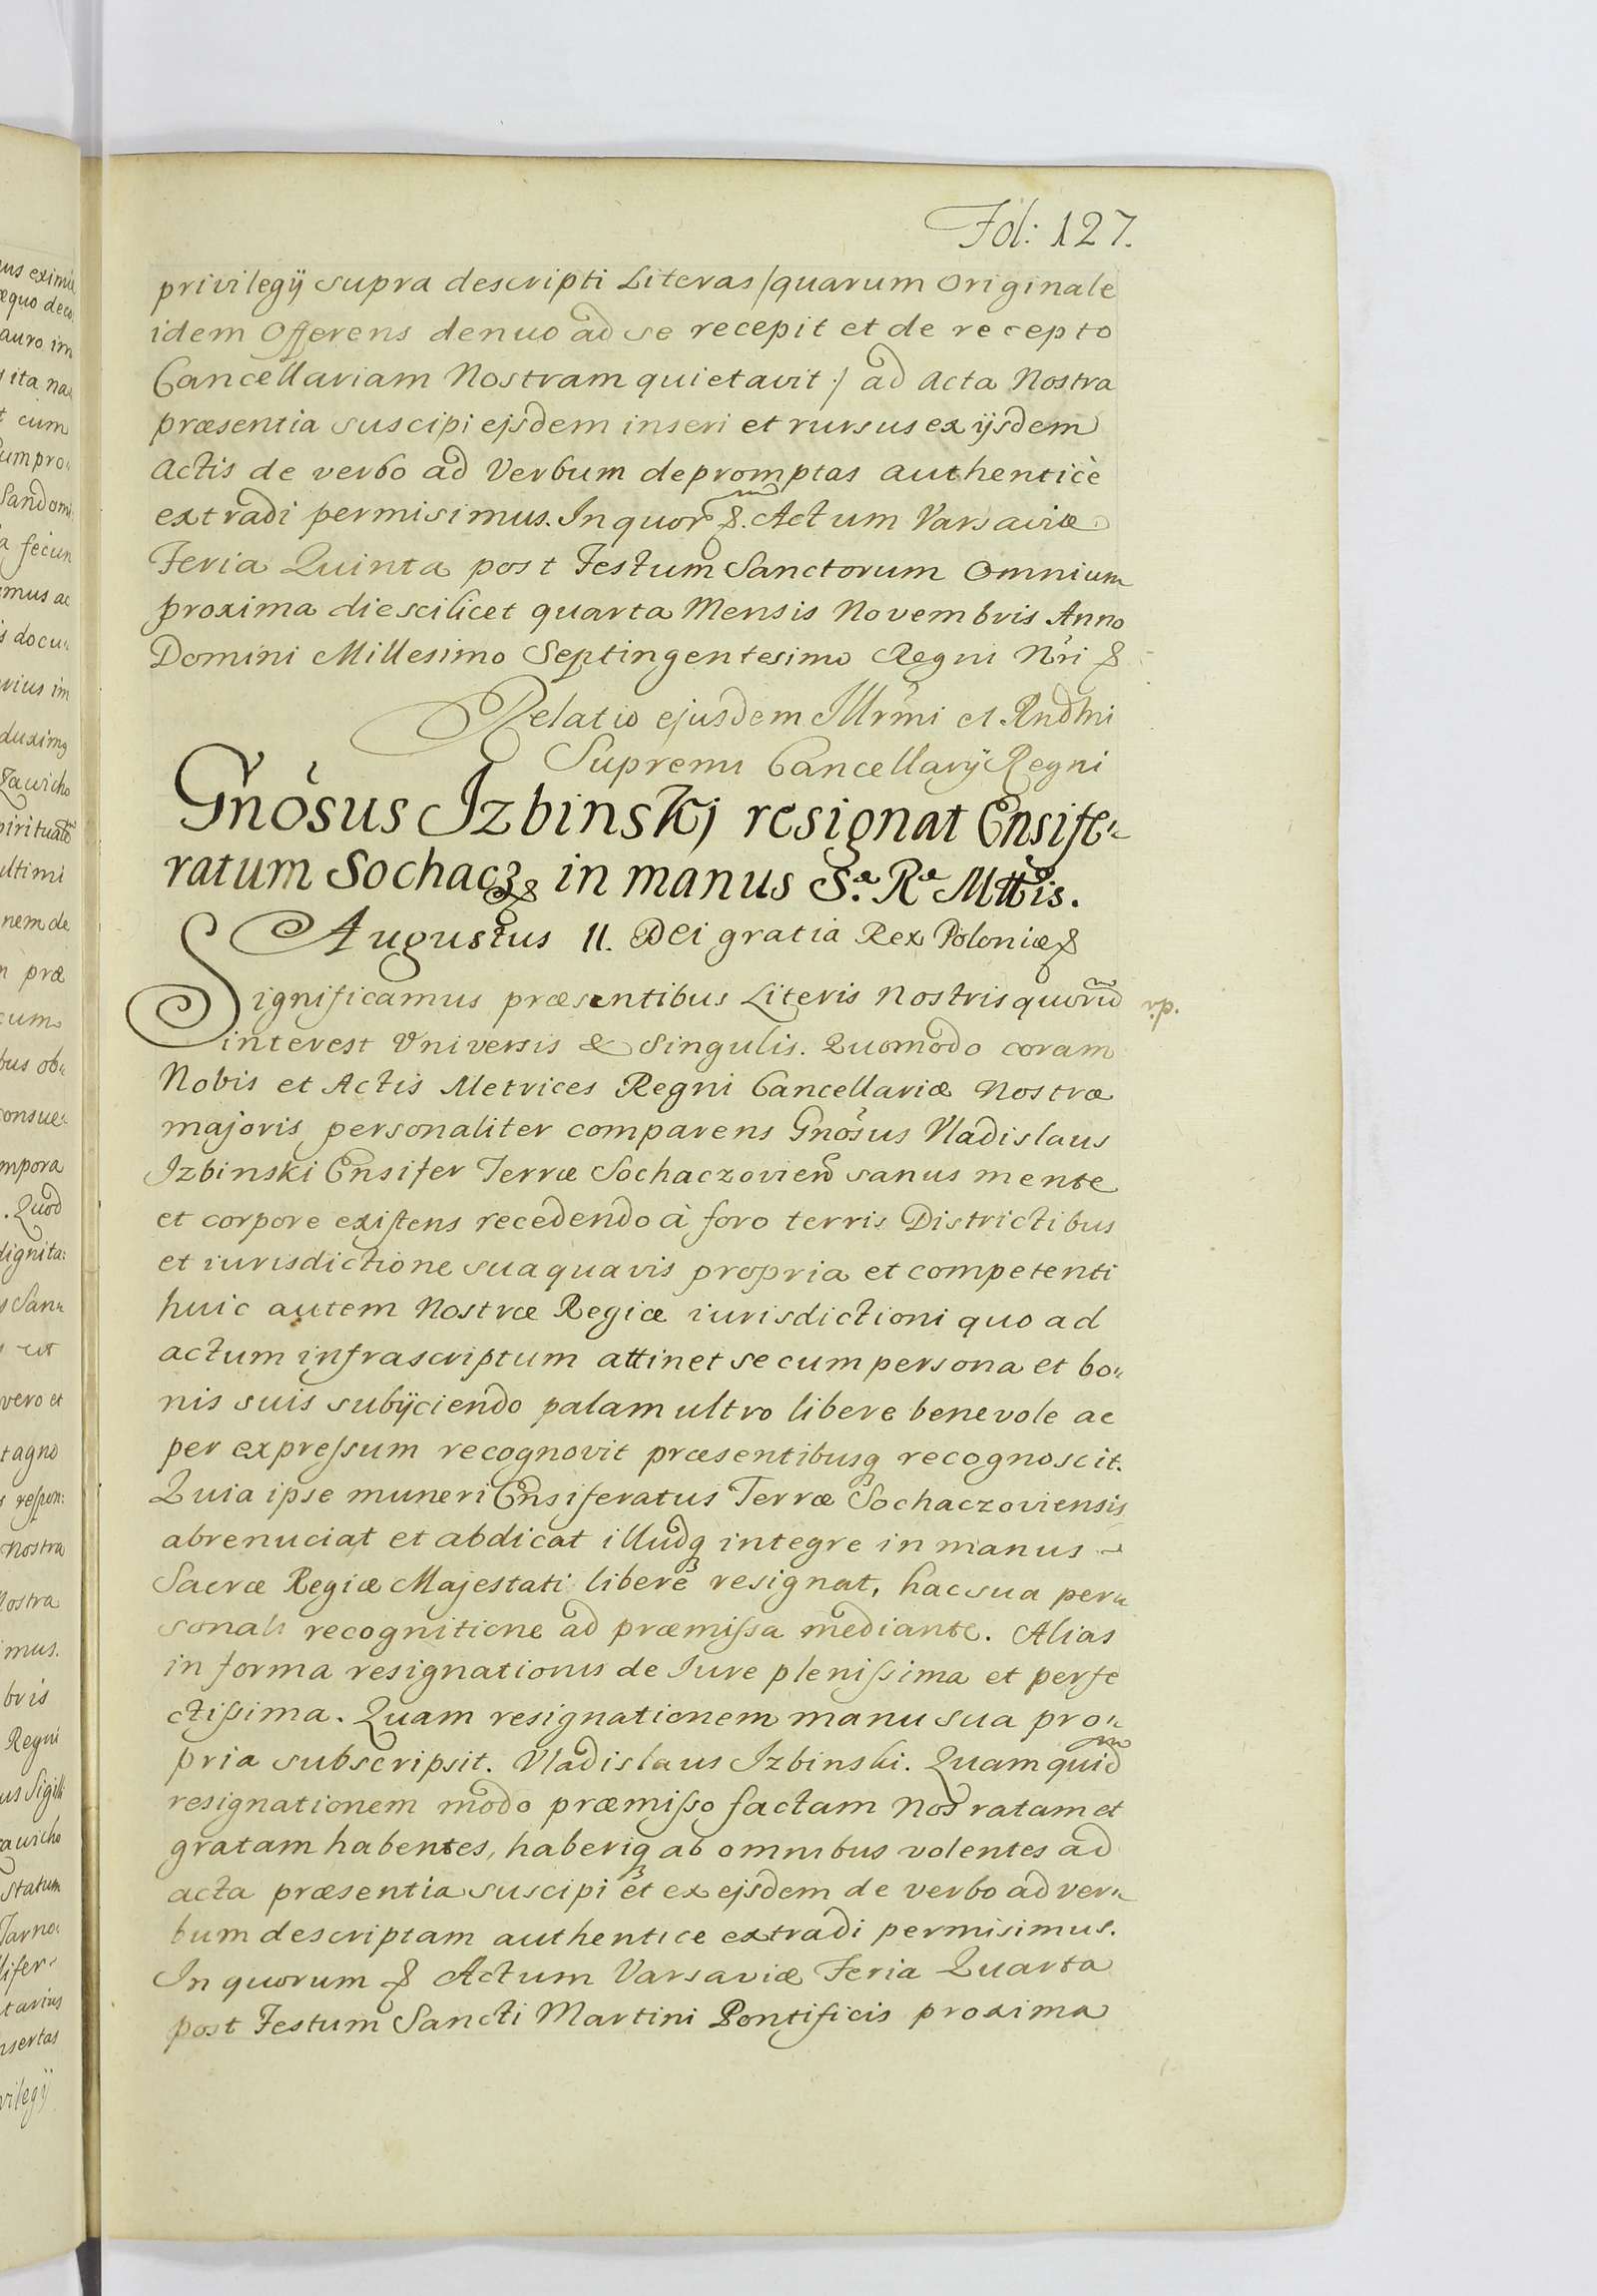 Fol: 127.
privilegÿ supra descripti Literas /quarum Originale
idem Offerens denuo ad se recepit et de recepto
Cancellariam Nostram quietavit:/ ad Acta Nostra
præsentia suscipi ejsdem inseri et rursus ex ijsdem
Actis de verbo ad Verbum depromptas authenticè
extradi permisimus. In quor &. Actum Varsaviæ
Feria Quinta post Festum Sanctorum Omnium
proxima die scilicet quarta Mensis Novembris Anno
Domini Millesimo Septingentesimo Regni Nri &
Relatio ejusdem Illrmi et Rndmi
Supremi Cancellarÿ Regni
Gnosus Izbinskj resignat Ensife„
ratum Sochacz& in manus S.æ R.æ Mttis.
Augustus II. Dei gratia Rex Poloniæ&
Significamus præsentibus Literis Nostris quorũ r.p.
interest Universis & Singulis. Quomodo coram
Nobis et Actis Metrices Regni Cancellariæ Nostræ
majoris personaliter comparens Gnosus Vladislaus
Izbinski Ensifer Terræ Sochaczovien sanus mente
et corpore existens recedendo à foro terris Districtibus
et iurisdictione sua quavis propria et competenti
huic autem Nostræ Regiæ iurisdictioni quo ad
actum infrascriptum attinet se cum persona et bo„
nis suis subÿciendo palam ultro libere benevole ac
per expressum recognovit præsentibusq recognoscit.
Quia ipse muneri Ensiferatus Terræ Sochaczoviensis
abrenuciat et abdicat illudq integre in manus
Sacræ Regiæ Majestati libere resignat, hac sua per„
sonali recognitione ad præmissa mediante. Alias
in forma resignationis de Iure plenissima et perfe
ctissima. Quam resignationem manu sua pro„
pria subscripsit. Vladislaus Izbinski. Quam quid
resignationem modo præmisso factam Nos ratam et
gratam habentes, haberiq ab omnibus volentes ad
acta præsentia suscipi et ex ejsdem de verbo ad ver„
bum descriptam authentice extradi permisimus.
In quorum & Actum Varsaviæ Feria Quarta
post Festum Sancti Martini Pontificis proxima